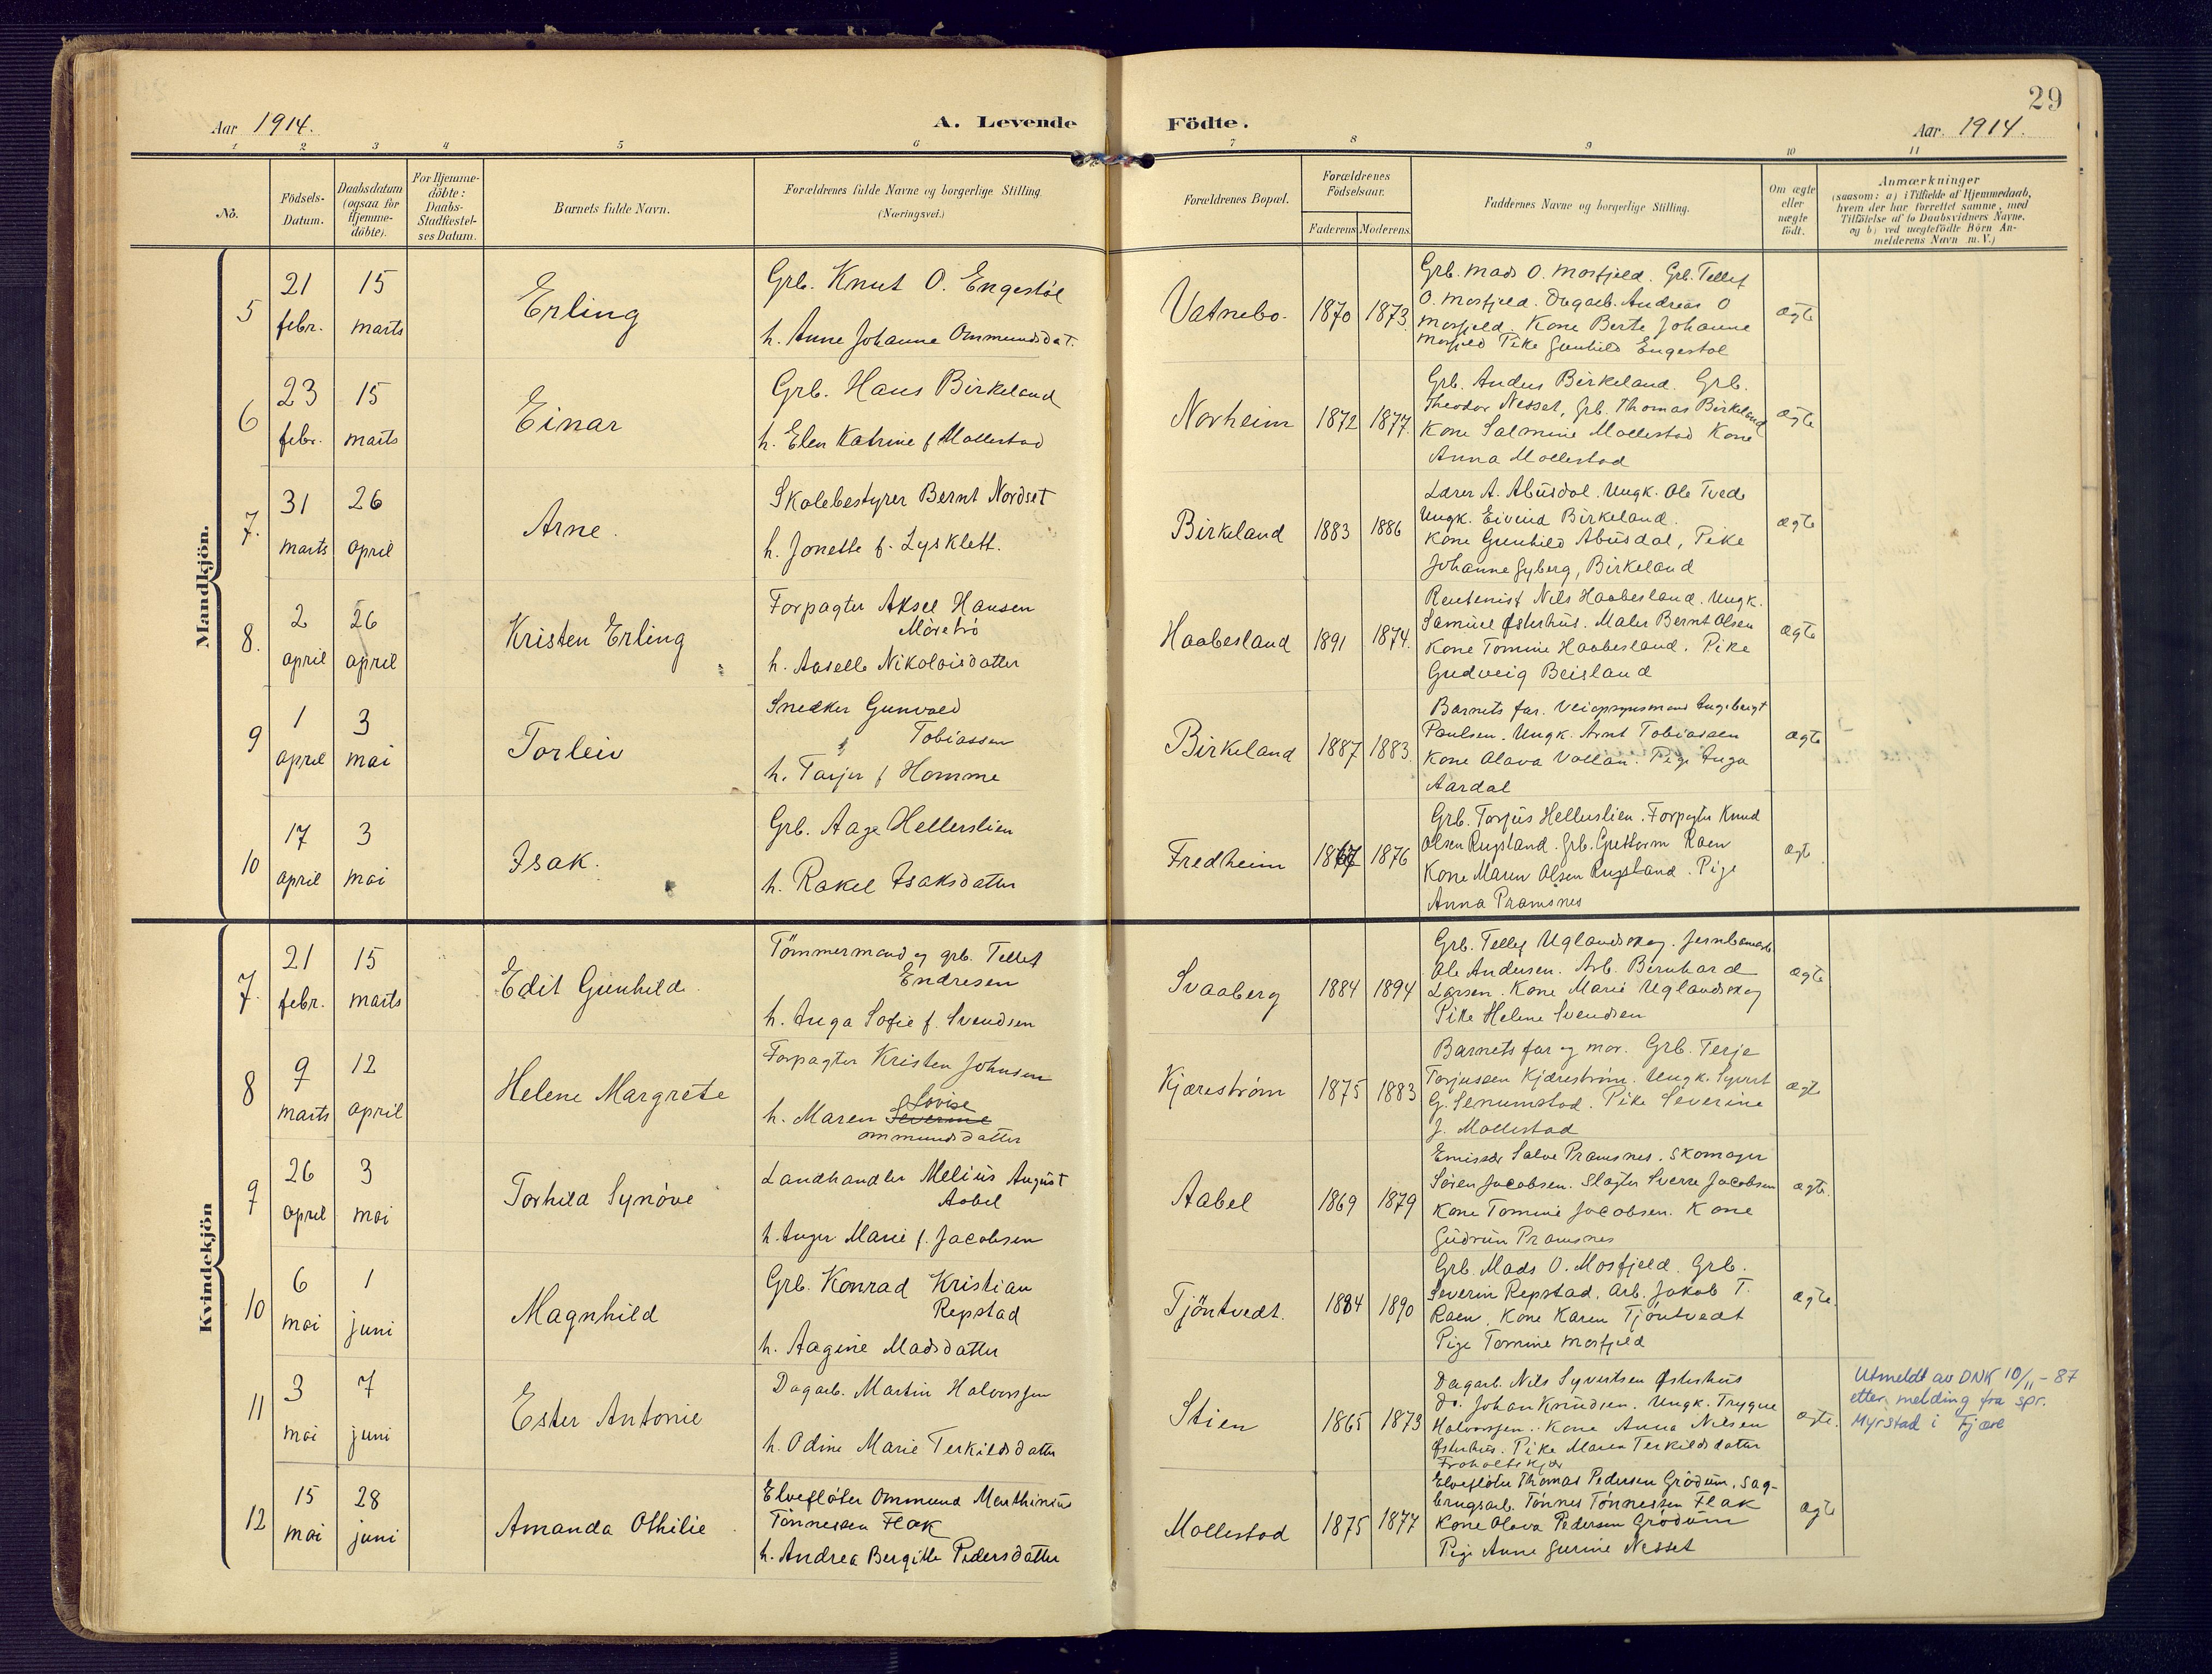 29
Aar 1914.
A. Levende
Födte.
Aar. 1914.
1 2 3 4 5 6 7 8 9 10 11
No.
Födsels-
Datum.
Daabsdatum
(ogsaa for
Hjemme-
döbte).
For Hjemme-
döbte:
Daabs-
Stadfæstel-
ses Datum.
Barnets fulde Navn.
Forældrenes fulde Navne og borgerlige Stilling.
(Næringsvei.)
Forældrenes Bopæl.
Forældrenes
Födselsaar.
Faderens Moderens.
Faddernes Navne og borgerlige Stilling.
Om ægte
eller
uægte
født.
Anmærkninger
(saasom: a) i Tilfælde af Hjemmedaab,
hvem der har forrettet samme, med
Tilföielse af to Daabsvidners Navne.
og b) ved uægtefödte Börn An-
melderens Navn m.V.)
Mandkjön.
5
21
febr.
15
marts
Erling
Grb. Knut O. Engestöl
h. Anne Johanne Ommundsdat.
Vatnebo.
1870 1873.
Grb. Mads O. Mosfjeld. Grb. Tellef
O. Mosfjeld. Dagarb. Andreas O
Mosfjeld. Kone Berte Johanne
Mosfjeld Pike Gunhild Engestøl
ægte
6
23
febr.
15
marts
Einar
Grb. Hans Birkeland
h. Elen Katrine f Mollestad
Norheim
1872 1877.
Grb. Anders Birkeland. Grb.
Theodor Nesset, Grb. Thomas Birkeland
Kone Salmine Mollestad Kone
Anna Mollestad
ægte
7.
31
marts
26
april
Arne.
Skolebestyrer Bernt Nordset
h. Jonette f. Lysklett.
Birkeland
1883 1886
Lærer A. Abusdal. Ungk. Ole Tvede
Ungk. Eivind Birkeland.
Kone Gunhild Abusdal, Pike
Johanne Gyberg, Birkeland
ægte
8.
2
april
26
april
Kristen Erling
Forpagter Aksel Hansen
Møretrö
h. Aaselle Nikolaisdatter
Haabesland
1891 1874.
Rentenist Nils Haabesland. Ungk.
Samuel Østerhus. Maler Bernt Olsen
Kone Tomine Haabesland. Pike
Gudveig Beisland
ægte
9
1
april
3
mai
Torleiv
Snedker Gunvald
Tobiassen
h. Tarjer f Homme
Birkeland
1887 1883.
Barnets far. Veiopsynsmand Ingebrigt
Paulsen. Ungk. Arnt Tobiassen
Kone Olava Vollan. Pige Inga
Aardal
ægte
10
17
april
3
mai
Isak.
Grb. Aage Hellerslien
h. Rakel Isaksdatter
Fredheim
1867 1876
Grb. Torjus Hellerslien. Forpagter Knud
Olsen Rugsland. Grb. Guttorm Raen
Kone Maren Olsen Rugsland. Pige
Anna Pramsnes
ægte
Kvindekjön
7.
21
febr.
15
marts
Edit Gunhild.
Tömmermand og grb. Tellef
Endresen
h. Inga Sofie f. Svendsen
Svaaberg
1884 1894
Grb. Tellef Uglandskog.
Ole Andersen. Arb. Bernhard
Larsen. Kone Marie Uglandskog
Pike Helene Svendsen
ægte
8
9
marts
12
april
Helene Margrete
Forpagter Kristen Johnsen
Lovise
h. Maren Severine
Ommundsdatter
Kjærestrøm
1875 1883
Barnets far og mor. Grb. Terje
Torjussen Kjærestrøm. Ungk. Syvert
G. Senumstad. Pike Severine
J. Mollestad
ægte
9
26
april
3
mai
Torhild Synöve
Landhandler Melius August
Aabel
h. Inger Marie f. Jacobsen
Aabel
1869 1879
Emissær Salve Pramsnes. Skomager
Sören Jacobsen. Slagter Sverre Jacobsen
Kone Tomine Jacobsen. Kone
Gudrun Pramsnes
ægte.
10
6
mai
1
juni
Magnhild
Grb. Konrad Kristian
Repstad
h. Aagine Madsdatter
Tjöntvedt.
1884 1890
Grb. Mads O. Mosfjeld. Grb.
Severin Repstad. Arb. Jakob T.
Raen. Kone Karen Tjöntvedt
Pige Tomine Mosfjeld
ægte.
11
3
mai
7
juni
Ester Antonie
Dagarb. Martin Halvorsen
h. Odine Marie Terkildsdatter
Stien
1865 1873
Dagarb. Nils Syvertsen Østerhus
Do. Johan Knudsen. Ungk. Trygve
Halvorsen. Kone Anna Nilsen
Østerhus. Pike Maren Terkildsdatter
ægte.
Utmeldt av DNK 10/11-87
etter melding fra spr.
Myrstad i Fjære
12
15
mai
28
juni
Amanda Othilie
Elvefløter Ommund Marthinius
Tönnessen Flak
h. Andrea Bergitte Pedersdatter
Mollestad
1875 1877
Elvefløter Thomas Pedersen Grödum. Sag-
brugsarb. Tönnes Tönnessen Flak
Kone Olava Pedersen Grödum
Pige Anne Gurine Nesset
ægte